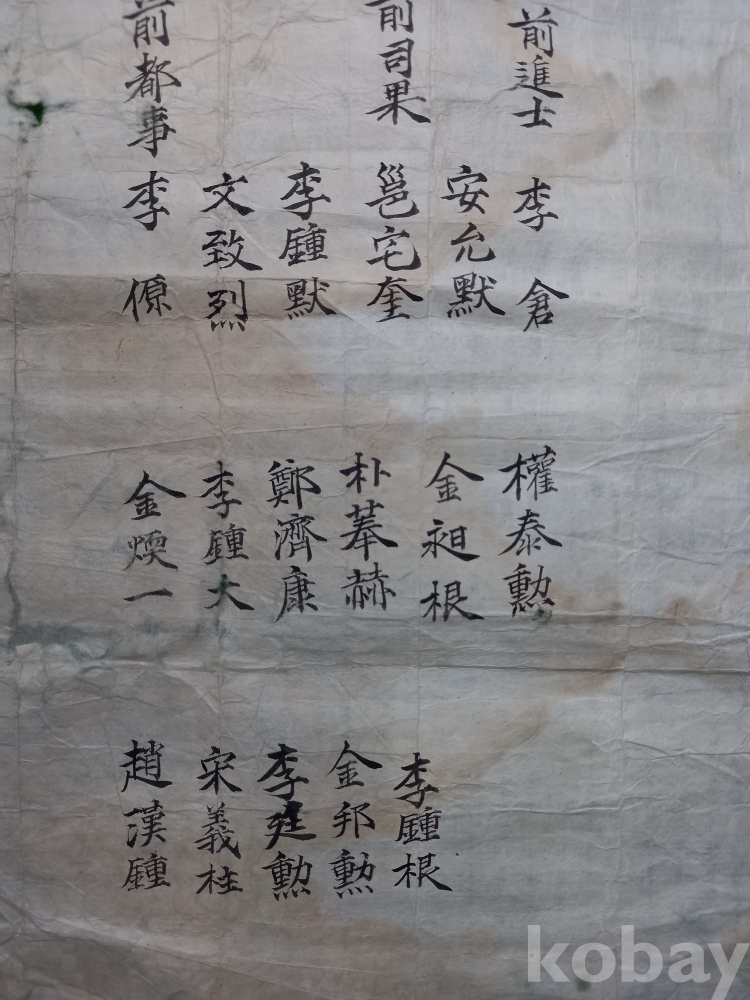 前進士 李 倉
安允默
前司果 邕宅奎
李鍾默
文致烈
前都事 李 傆
權泰勳
金昶根
朴華赫
鄭濟康
李鍾大
金煐一
李鍾根
金邦勳
李廷勳
宋義柱
趙漢鍾
kobay